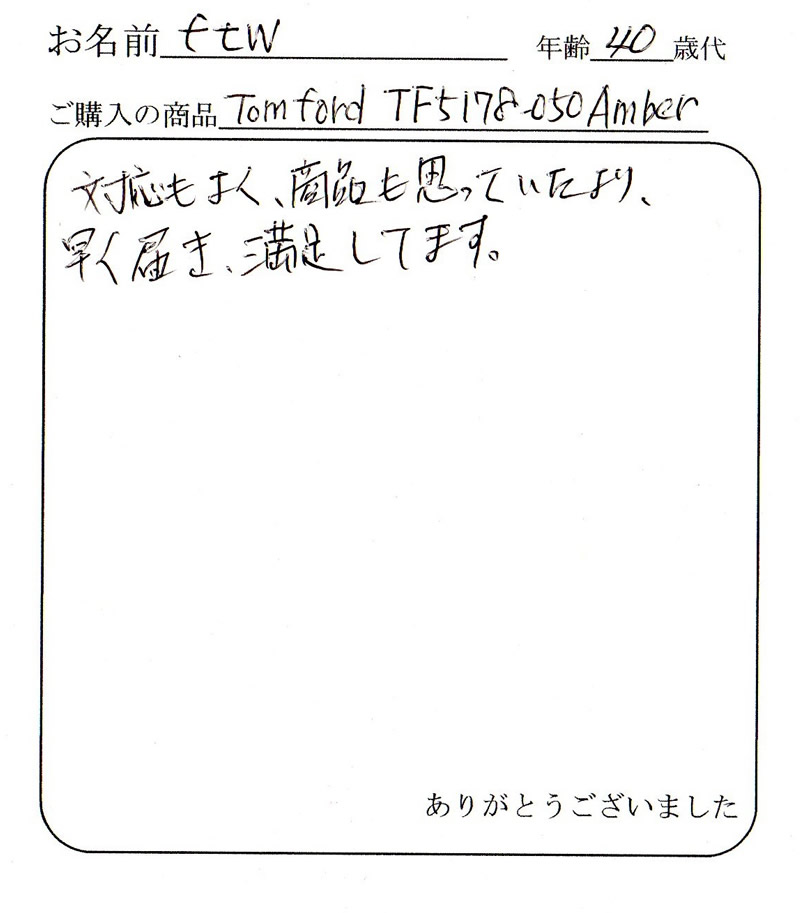 お名前 ftw 年齢 40 歳代
ご購入の商品 Tomford TF5178-050 Amber
対応もよく、商品も思っていたより、
早く届き、満足してます。
ありがとうございました